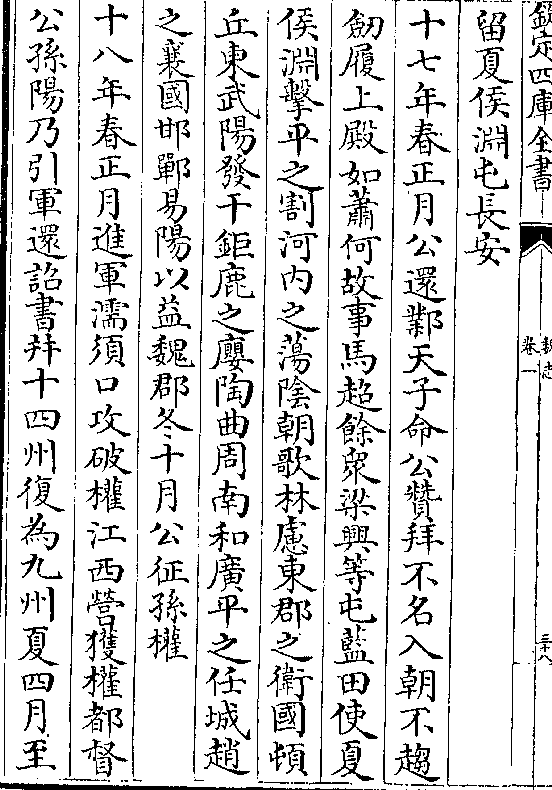 欽定四庫全書
魏志
卷一
三十八
留夏侯淵屯長安
十七年春正月公還鄴天子命公贊拜不名入朝不趨
劒履上殿如蕭何故事馬超餘衆梁興等屯藍田使夏
侯淵擊平之割河內之蕩陰朝歌林慮東郡之衛國頓
丘東武陽發干鉅鹿之廮陶曲周南和廣平之任城趙
之襄國邯鄲易陽以益魏郡冬十月公征孫權
十八年春正月進軍濡須口攻破權江西營獲權都督
公孫陽乃引軍還詔書并十四州復為九州夏四月至